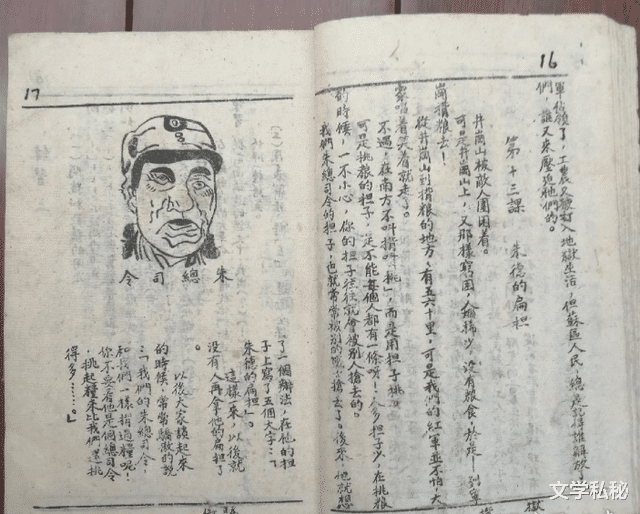 16
軍佔領了，工農又被打入地獄生活，但蘇區人民，總是記得誰解放了他
們，誰又來壓迫他們的。
第十三課　朱德的扁担
井崗山被敵人圍困着。
可是井崗山上，又那樣窮困，人烟稀少，沒有粮食，於是──到寧
崗揹粮去！
從井崗山到揹粮的地方，有五六十里，可是我們的紅軍並不怕，大
家唱着笑着就走了。
不過，在南方不叫揹叫「挑」，而是用担子挑。
可是挑粮的担子，是不能每個人都有一條呀！人多担子少，在挑粮
的時候，一不小心，你的担子往往就會被別人搶去的。
我們朱總司令的担子，也就常常被別的同志搶去了。後來，他就想
17
朱總司令
了一個辦法，在他的担
子上寫了五個大字：「
朱德的扁担」。
這樣一來，以後就
沒有人再拿他的扁担了
。
以後大家談起來
的時候，常常驕傲的說
：「我們的朱總司令，
和我們一樣揹過糧呢！
你不要看他是個總司令
，挑起糧來比我們還挑
得多……。」
文学私秘